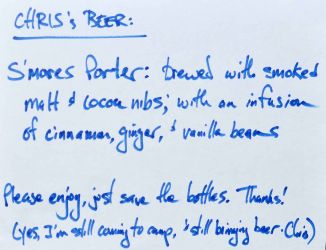 CHRIS's BEER:
S'mores Porter: brewed with smoked
malt & cocoa nibs; with an infusion
of cinnamon, ginger, & vanilla beans
Please enjoy, just save the bottles. Thanks!
(yes, I'm still coming to camp, & still bringing beer - Chris)